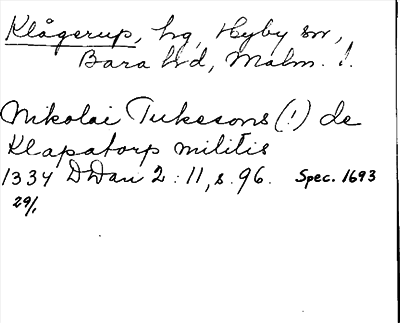 Klågerup, hg, Hyby sn,
Bara hd, Malm. l.
Nikolai Tukesons (!) de
Klapatorp militis
1334 DDan 2:11, s. 96. Spec. 1693
29/1